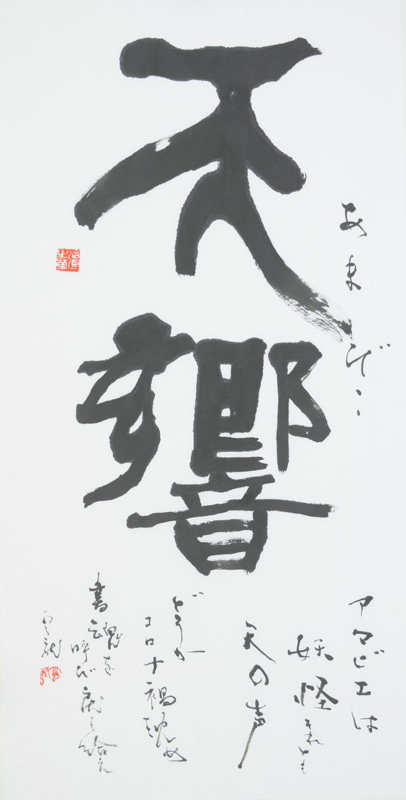 天響
あまびこ
アマビエは
妖怪それとも
天の声
どうか
コロナ禍鎮め
書魂を
呼び戻し給え